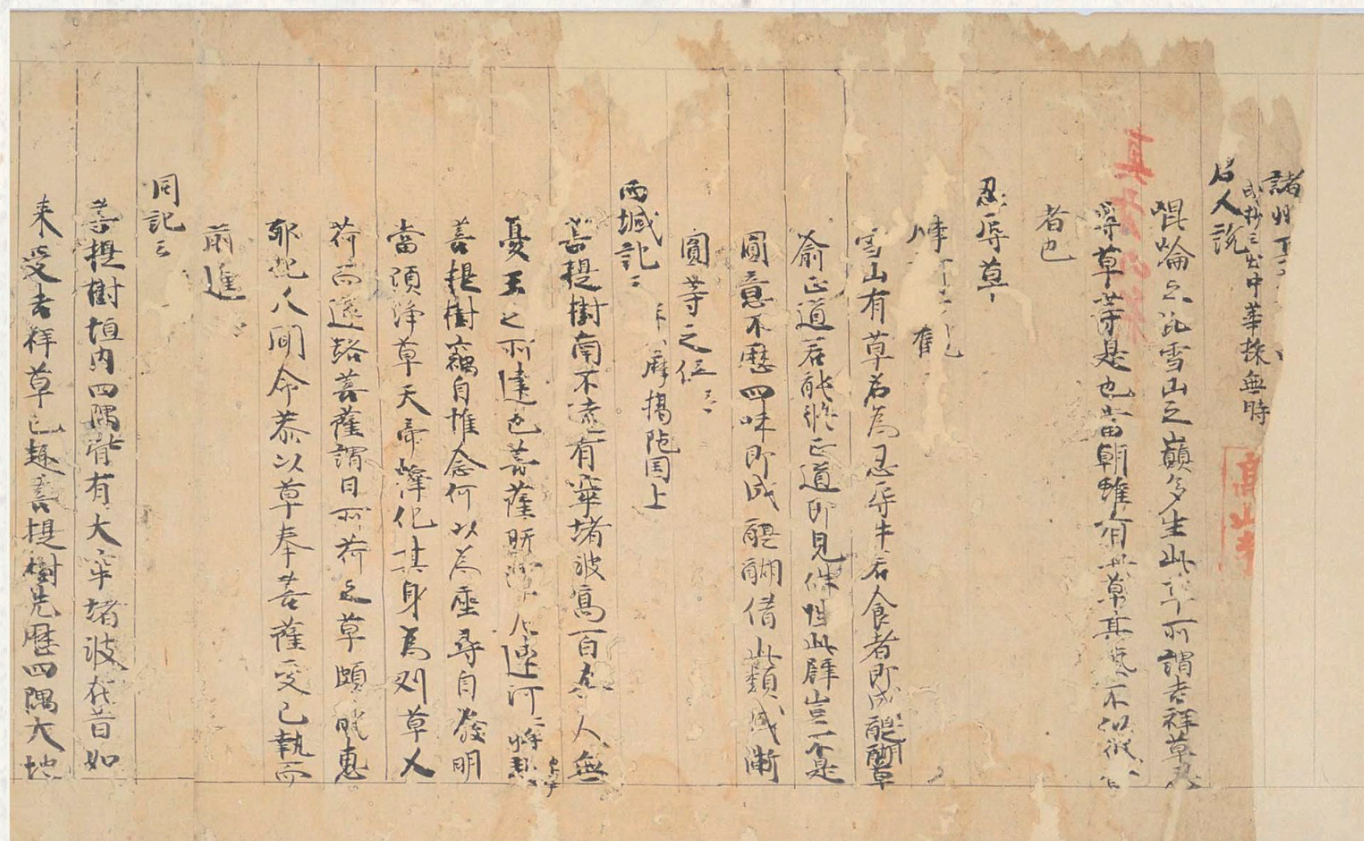 諸
出中華採無時
名人説
崐崘亦名雪山之巔多生此草所謂吉祥草忍
辱草等是也当朝雖有此草其 不似彼
者也
忍辱草
雪山有草名為忍辱牛若食者即成醍醐草
喻正道若能修正道即見仏性此辟豈不是
圓意不歷四味即成醍醐借此類成漸
圓等之位云云
西域記云
摩揭陁国上
菩提樹南不遠有窣堵波高百余尺無
憂王之所建也菩薩既濯尼連河將趣
菩提樹竊自惟念何以為座尋自發明
當須淨草天帝釋化其身為刈草人
荷而逐路菩薩謂曰所荷之草頗能惠
耶化人聞命恭以草奉菩薩受已執而
前進云云
同記云
菩提樹垣内四隅皆有大窣堵波在昔如
来受吉祥草已趣菩提樹先歷四隅大地
高山寺